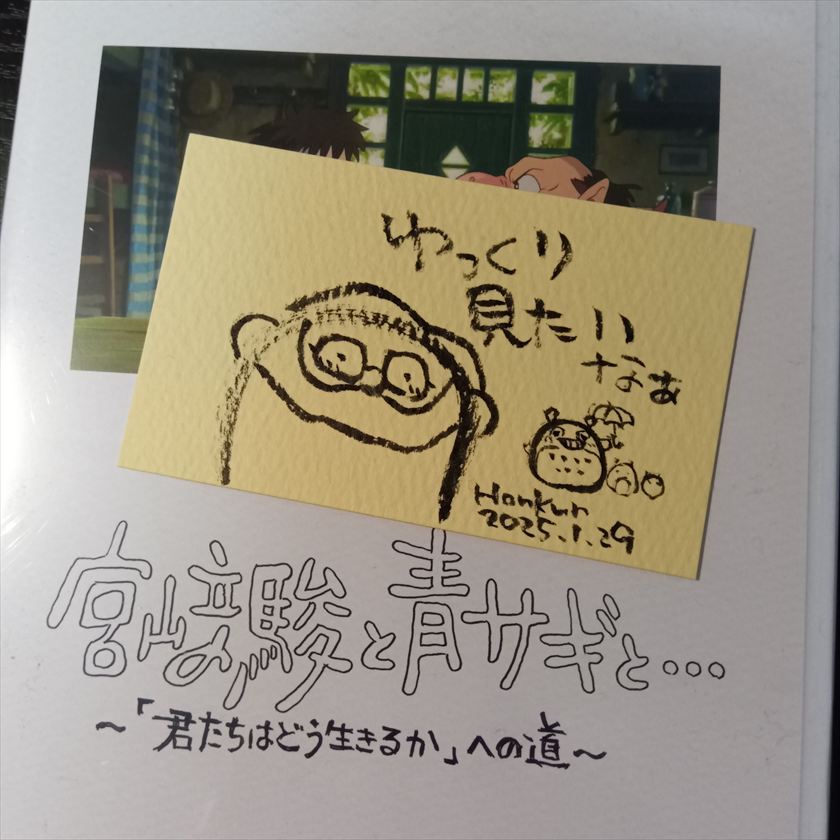 ゆっくり
見たい
なぁ
Honkun
2025.1.29
宮﨑駿と青サギと…
～「君たちはどう生きるか」への道～